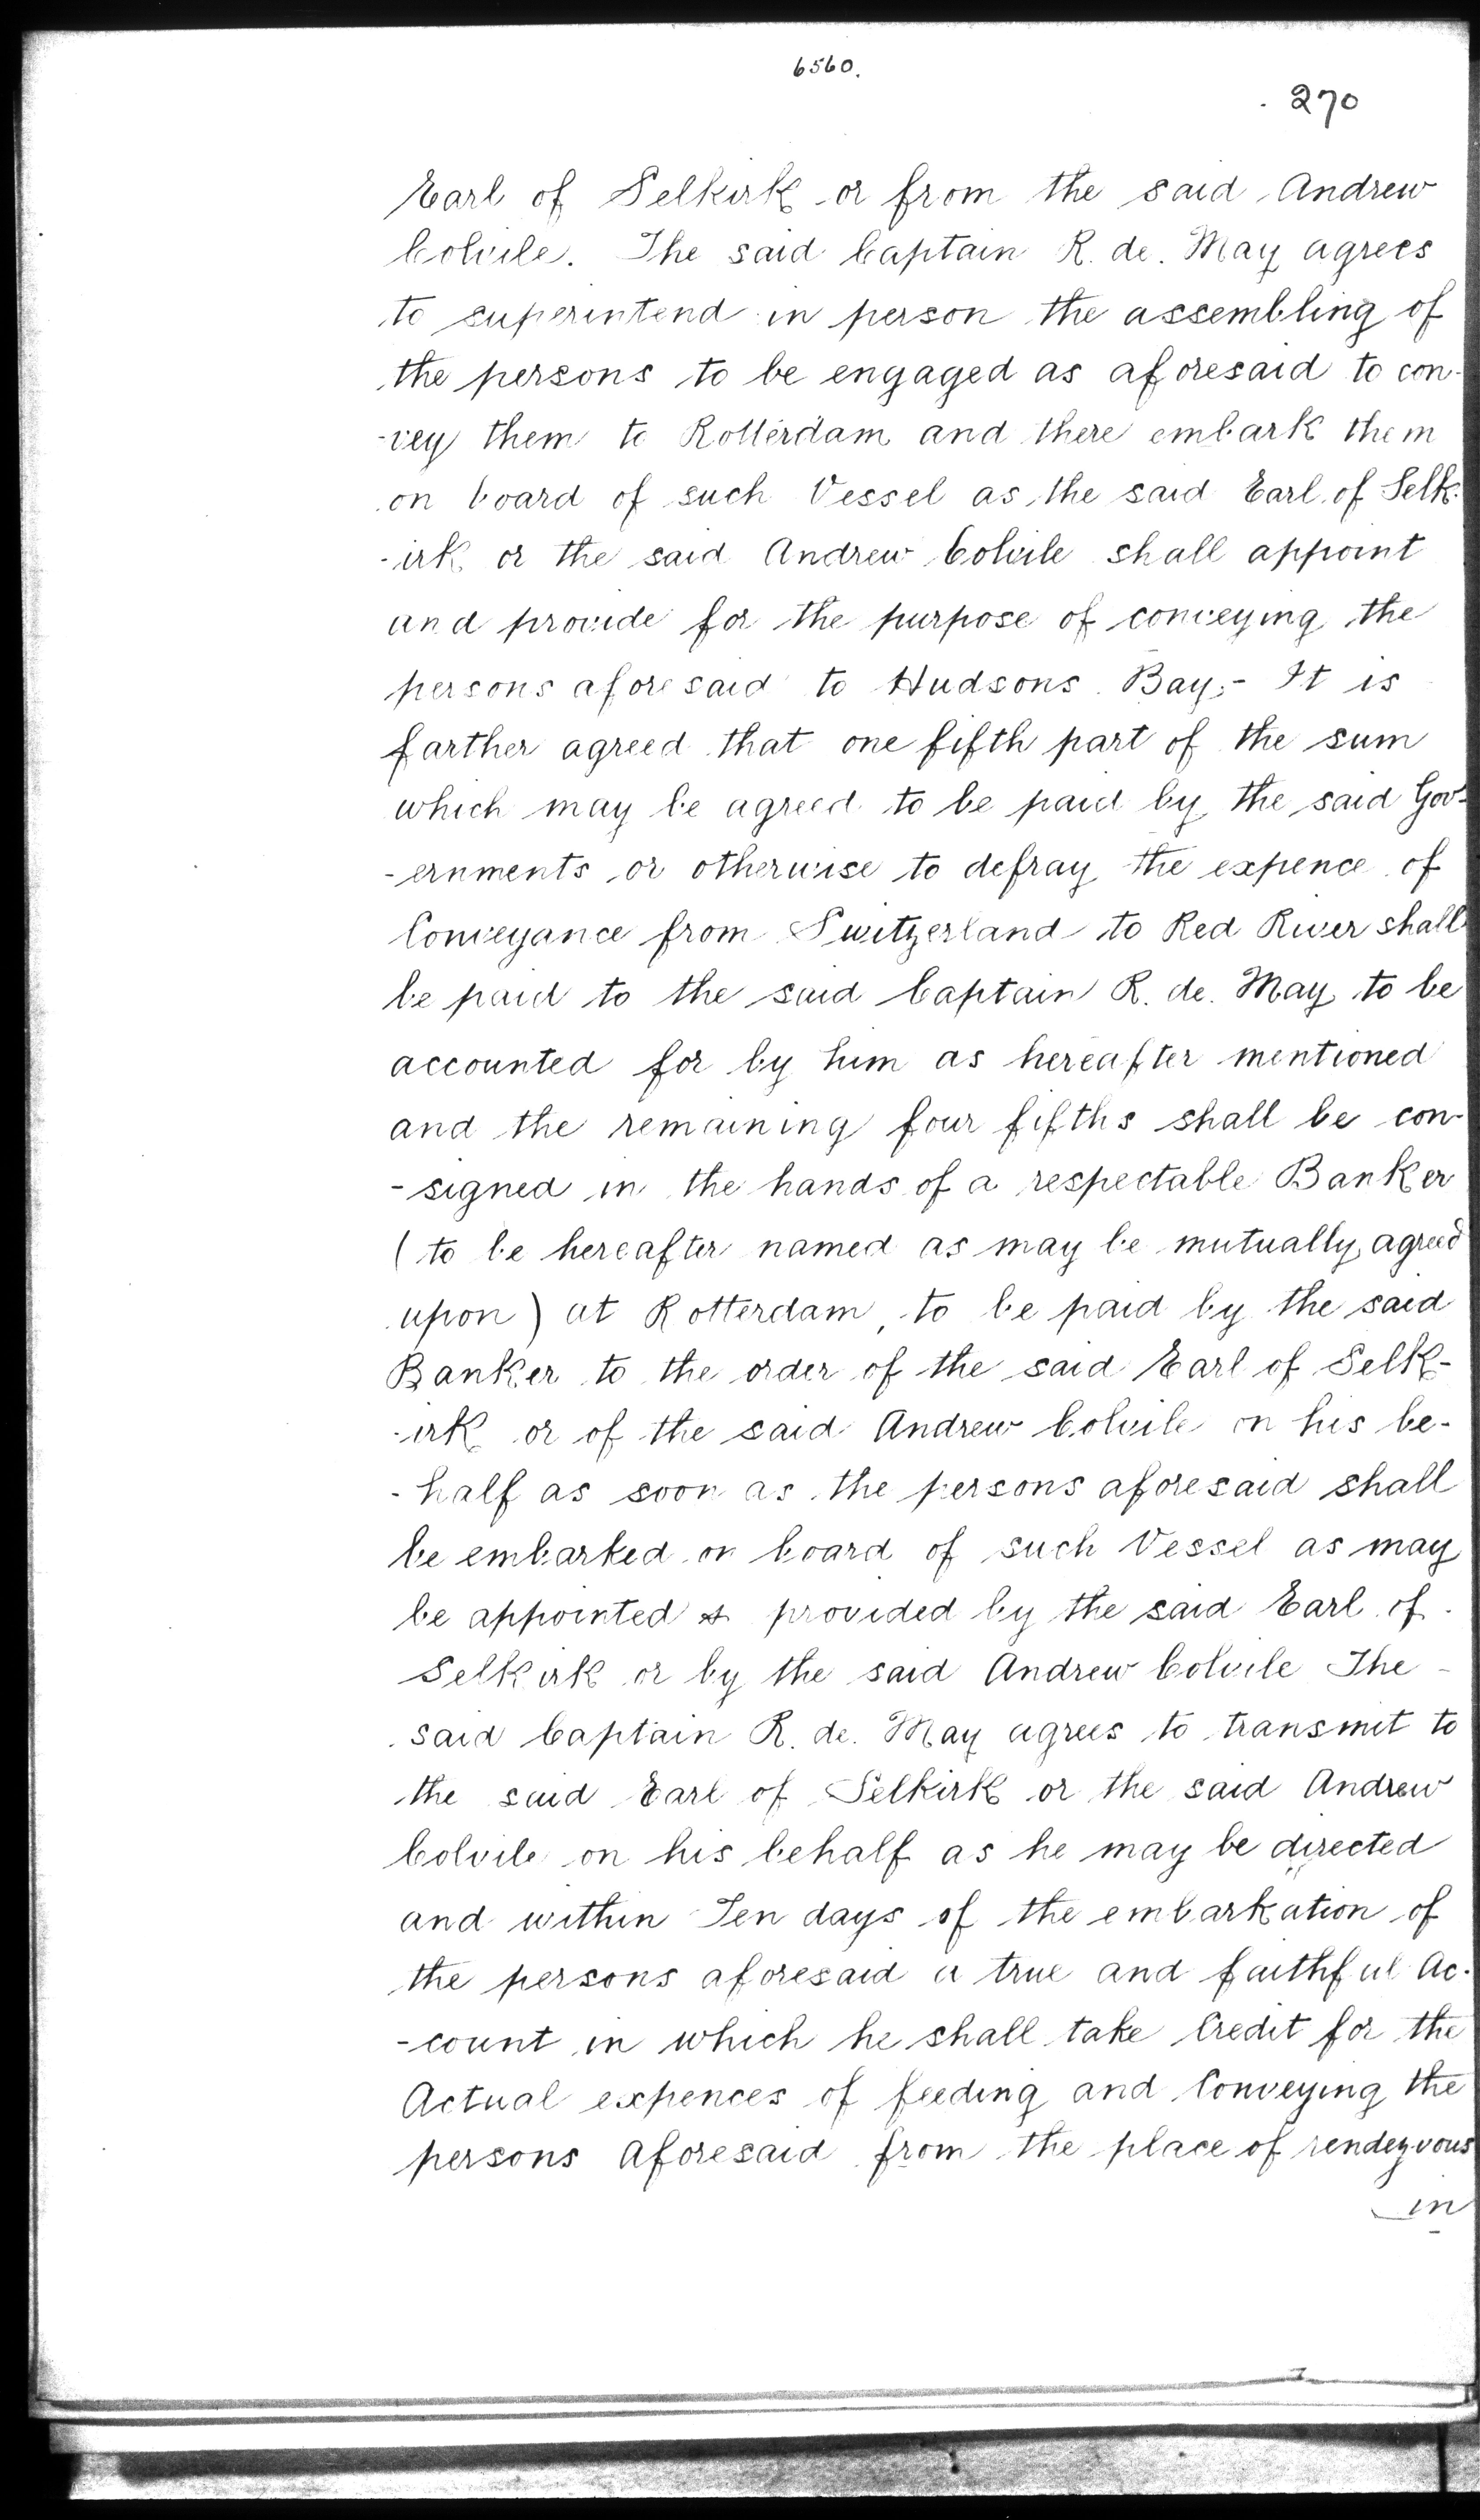 6560.
270
Earl of Selkirk or from the said Andrew
Colvile. The said Captain R. de. May agrees
to superintend in person the assembling of
the persons to be engaged as aforesaid to con-
-vey them to Rotterdam and there embark them
on board of such Vessel as the said Earl of Selk-
-irk or the said Andrew Colvile shall appoint
and provide for the purpose of conveying the
persons aforesaid to Hudsons Bay,- It is
farther agreed that one fifth part of the sum
which may be agreed to be paid by the said Gov-
-ernments or otherwise to defray the expence of
Conveyance from Switzerland to Red River shall
be paid to the said Captain R. de. May to be
accounted for by him as hereafter mentioned
and the remaining four fifths shall be con-
-signed in the hands of a respectable Banker
(to be hereafter named as may be mutually agreed
upon) at Rotterdam, to be paid by the said
Banker to the order of the said Earl of Selk-
-irk or of the said Andrew Colvile on his be-
-half as soon as the persons aforesaid shall
be embarked on board of such Vessel as may
be appointed & provided by the said Earl of
Selkirk or by the said Andrew Colvile The
said Captain R. de. May agrees to transmit to
the said Earl of Selkirk or the said Andrew
Colvile on his behalf as he may be directed
and within Ten days of the embarkation of
the persons aforesaid a true and faithful Ac-
-count in which he shall take Credit for the
Actual expences of feeding and Conveying the
persons aforesaid from the place of rendezvous
in